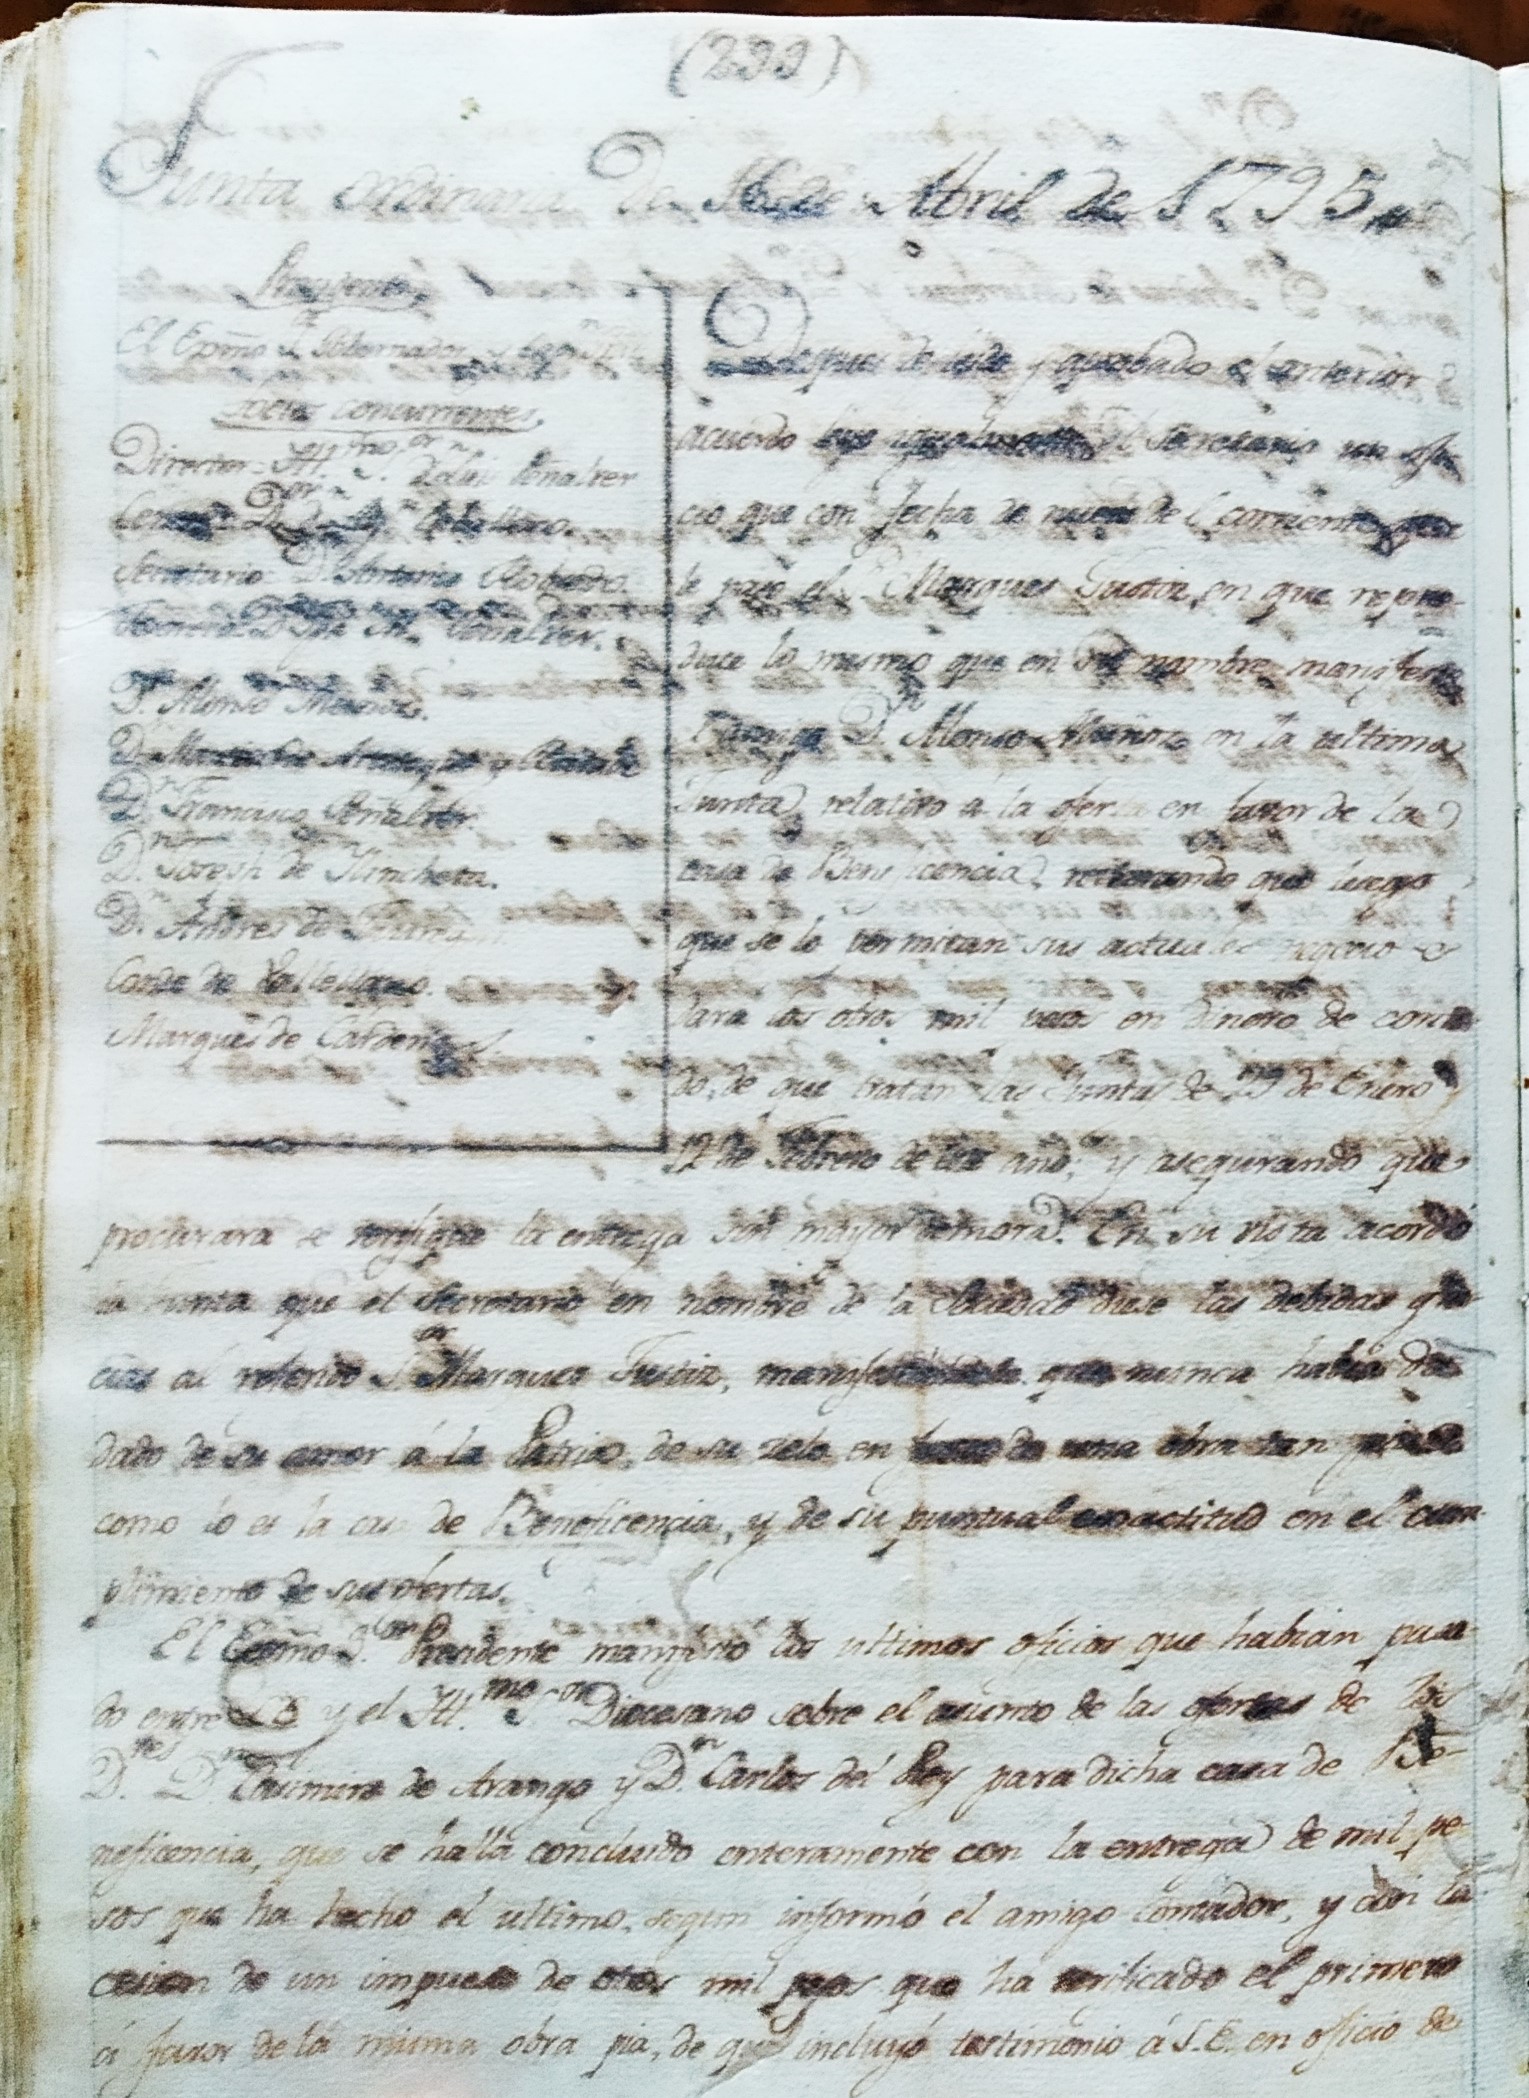 (299)
Junta ordinaria De 16 de Abril de 1795
Presidente
El Exmõ Sor Gobernador y
socios concurrentes.
Director: Illmo Sor Dn Luis Peñalver
Censor: Dn Caballero.
Secretario: Dn Antonio Robredo.
Tesorero: Dn Jph Ma Peñalver.
Dn Alonso Menòs.
Dn
Dn Francisco Peñalver.
Dn Joseph de Ilincheta.
Dn Andres de
Conde de Vallellano.
Marques de Cardenas
Despues de leido y aprobado el anterior
acuerdo leyo igualmente el Secretario un ofi-
cio que con fecha de nueve del corriente
le pasó el Sor Marques Justiz, en que repro-
duce lo mismo que en su nombre manifestó
el amigo Dn Alonso en la ultima
Junta, relativo a la oferta en favor de la
casa de Beneficencia, reiterando que luego
que se lo permitan sus actuales negocios
dara los otros mil pesos en dinero de conta-
do, de que tratan las Juntas de 29 de Enero y
12 de Febrero de este año; y asegurando que
procurará se verifique la entrega sin mayor demora. En su vista acordó
la Junta que el Secretario en nombre de la Sociedad diese las debidas gra-
cias al referido Sor Marques Justiz, manifestandole que nunca habia du-
dado de su amor á la Patria, de su zelo en favor de una obra tan piadosa
como lo es la casa de Beneficencia, y de su puntual exactitud en el cum-
plimiento de sus ofertas.
El Exmõ Sor Presidente manifestó los ultimos oficios que habian pasa-
do entre S.E. y el Illmo Sor Diocesano sobre el asunto de las ofertas de los
Dres Dn Casimiro de Arango y Dn Carlos del Rey para dicha casa de Be-
neficencia, que se halla concluido enteramente con la entrega de mil pe-
sos que ha hecho el ultimo, segun informó el amigo Contador, y con la
cesion de un impuesto de otros mil pesos que ha verificado el primero
á favor de la misma obra pia, de que incluyó testimonio á S.E. en oficio de